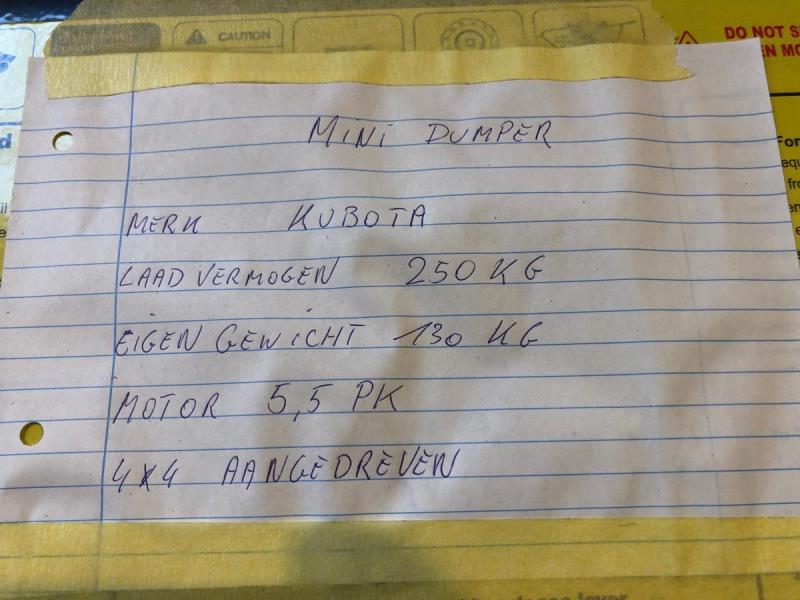 CAUTION
DO NOT
MINI DUMPER
MERK KUBOTA
LAAD VERMOGEN 250 KG
EIGEN GEWICHT 130 KG
MOTOR 5,5 PK
4X4 AANGEDREVEN